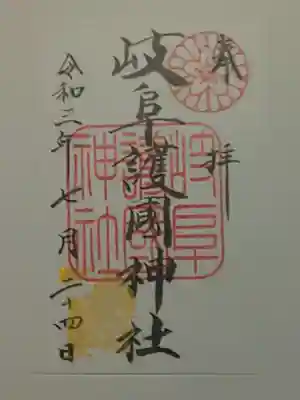 奉拝
岐阜護國神社
岐阜護國神社
令和三年七月二十四日